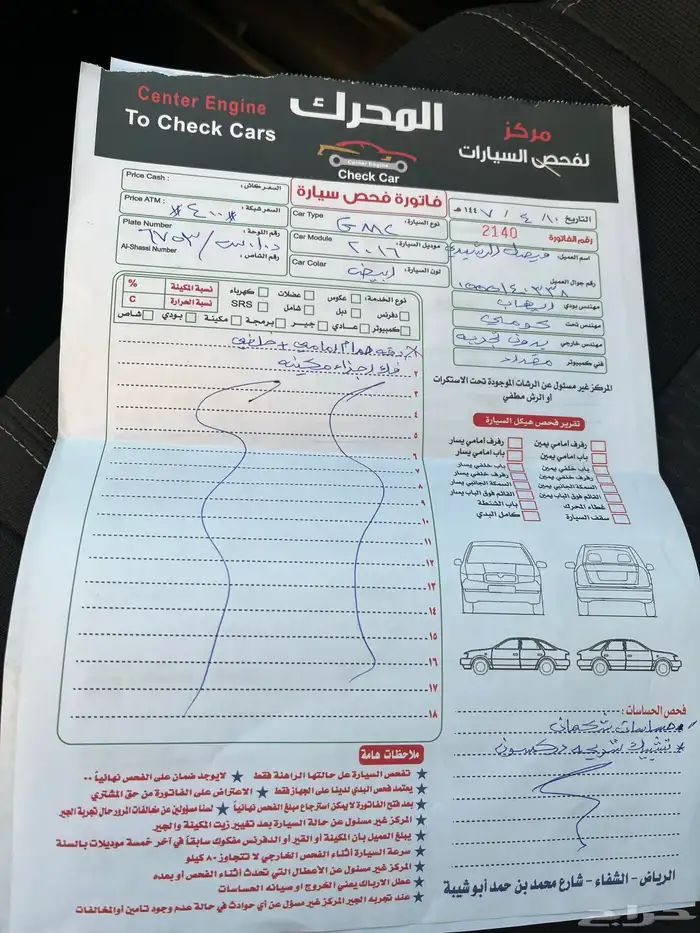 Center Engine
To Check Cars
المحرك
مركز
لفحص السيارات
Center Engine
Check Car
Price Cash :
السعر كاش :
Price ATM :
السعر شبكة :
#٤٠٠#
Plate Number
رقم اللوحة :
Al-Shassi Number
رقم الشاص :
فاتورة فحص سيارة
Car Type
نوع السيارة :
GMC
Car Module
موديل السيارة :
٢٠١٦
Car Color
لون السيارة :
ابيض
التاريخ ١٠ / ٤ / ١٤٤٧ هـ
رقم الفاتورة 2140
اسم العميل :
رقم جوال العميل
مهندس بودي
مهندس تحت
مهندس خارجي
بدون تجربه
فني كمبيوتر
مقداد
المركز غير مسئول عن الرشات الموجودة تحت الاستكرات
أو الرش مطفي
نوع الخدمة : عكوس عضلات كهرباء
دفرنس دبل شامل SRS
كمبيوتر عادي جير برمجة مكينة بودي شاص
نسبة المكينة %
نسبة الحرارة C
فك اجزاء مكينه
٢
٣
٤
٥
٦
٧
٨
٩
١٠
١١
١٢
١٣
١٤
١٥
١٦
١٧
١٨
تقرير فحص هيكل السيارة
رفرف امامي يمين رفرف امامي يسار
باب امامي يمين باب امامي يسار
باب خلفي يمين باب خلفي يسار
رفرف خلفي يمين رفرف خلفي يسار
السمكة الجانبي يمين السمكة الجانبي يسار
القائم فوق الباب يمين القائم فوق الباب يسار
غطاء المحرك باب الشنطة
سقف السيارة كامل البدي
فحص الحساسات :
ملاحظات هامة
تفحص السيارة عل حالتها الراهنة فقط ★ لايوجد ضمان على الفحص نهائياً ٠٠
يعتمد فحص البدي لدينا على الجهاز فقط ★ الاعتراض على الفاتورة من حق المشتري
بعد فتح الفاتورة لا يمكن استرجاع مبلغ الفحص نهائياً ★ لسنا مسؤولين عن مخالفات المرور حال تجربة الجير
المركز غير مسئول عن حالة السيارة بعد تغيير زيت المكينة والجير
يبلغ العميل بأن المكينة أو القير أو الدفرنس مفكوك سابقاً في آخر خمسة موديلات بالسنة
سرعة السيارة أثناء الفحص الخارجي لا تتجاوز ٨٠ كيلو
المركز غير مسئول عن الأعطال التي تحدث أثناء الفحص أو بعده
عطل الارباك يعني الخروج او صيانه الحساسات
عند تجربه الجير المركز غير مسؤل عن أي حوادث في حالة عدم وجود تامين أوالمخالفات
الرياض - الشفاء - شارع محمد بن حمد أبو شيبة
حراج